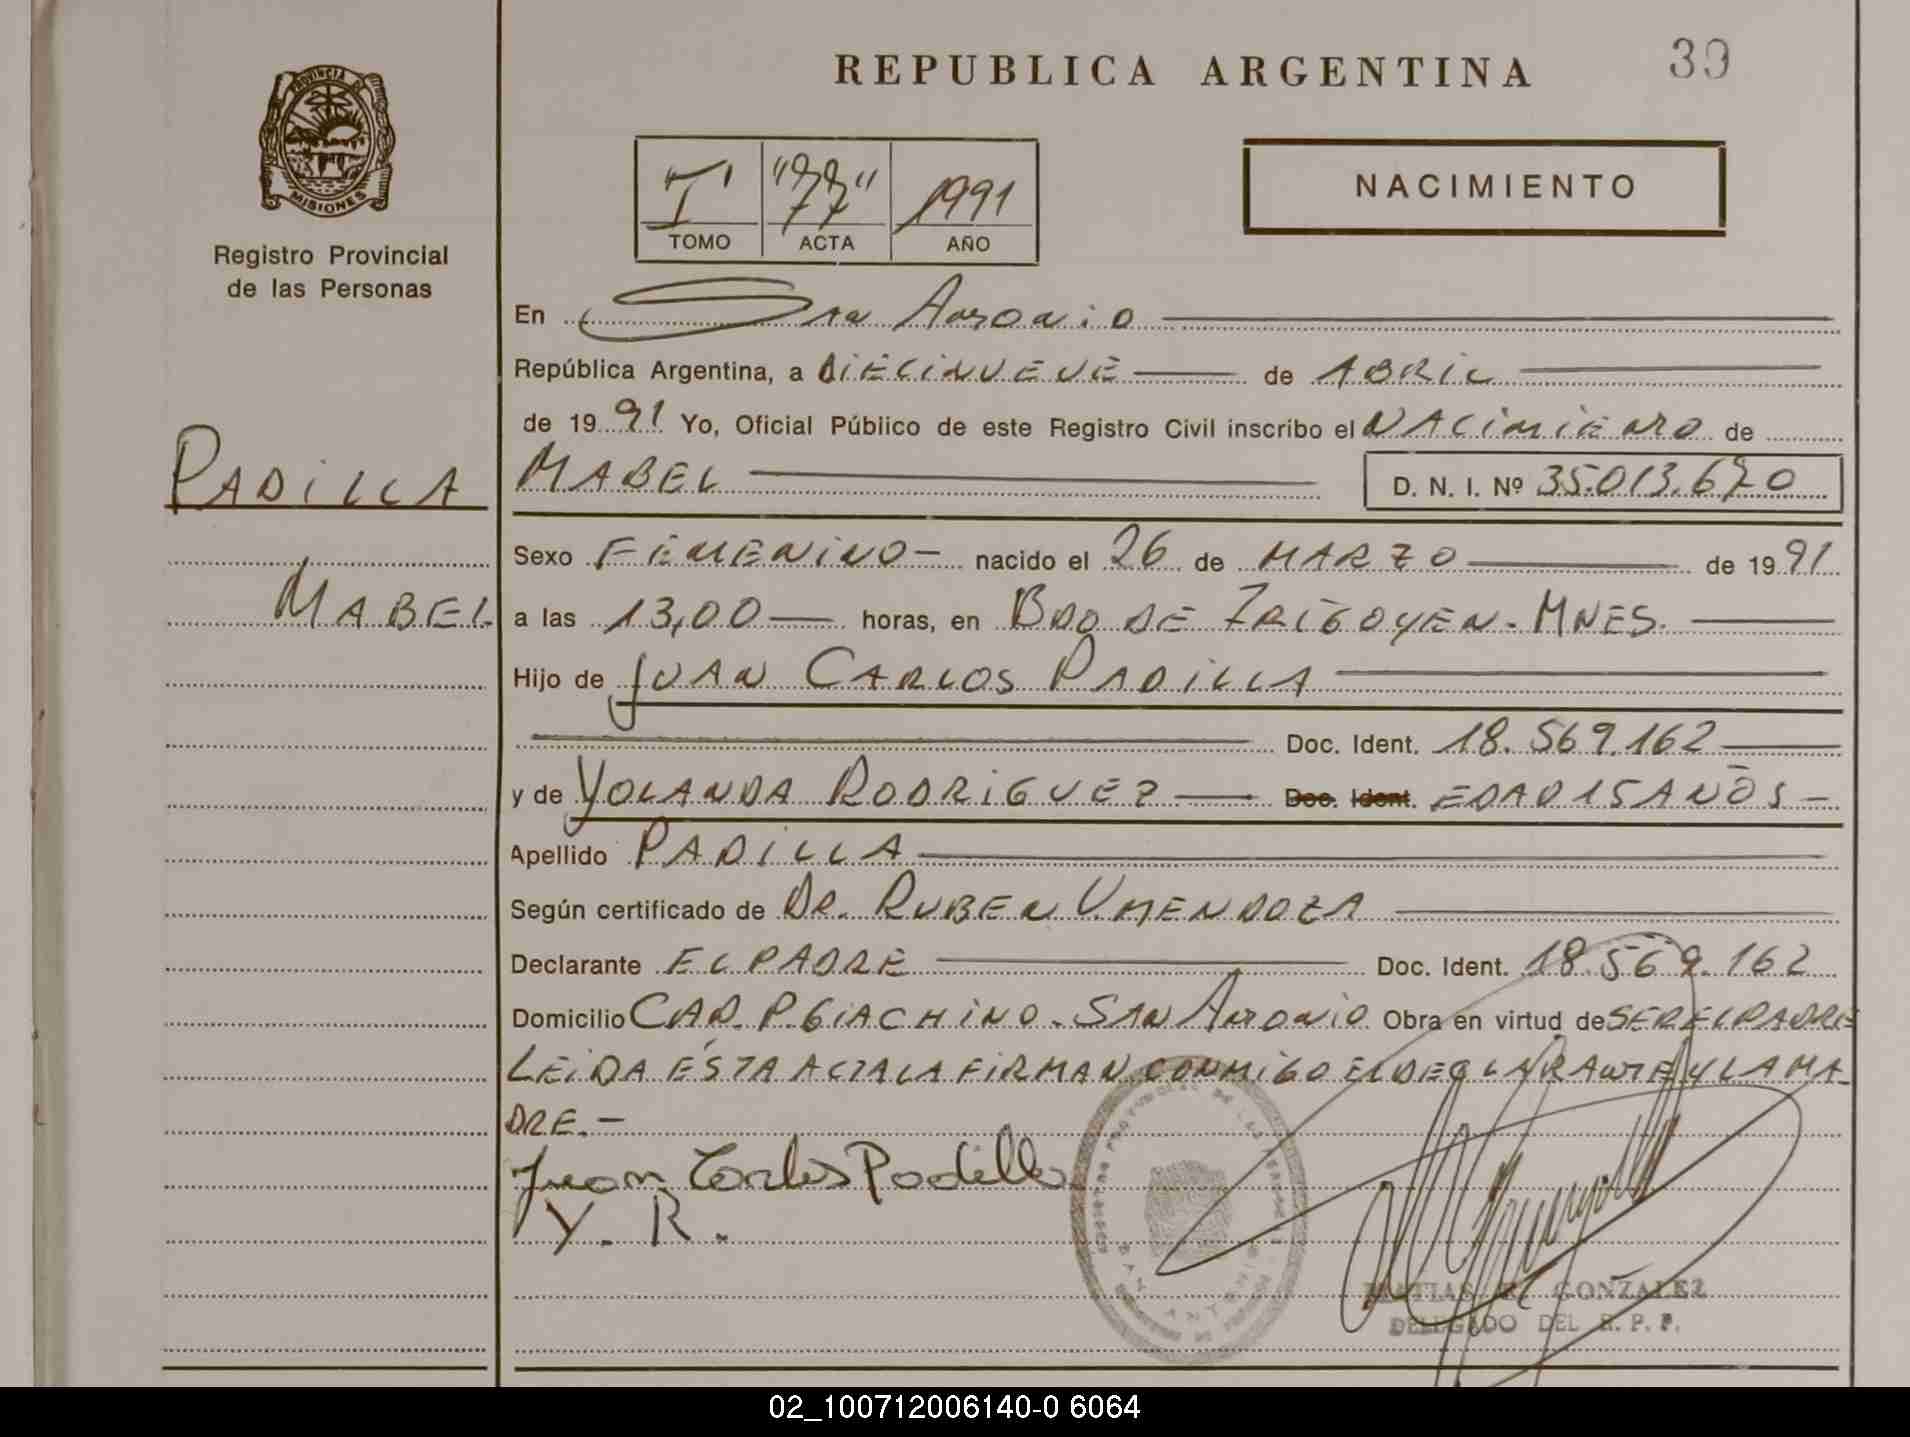 REPUBLICA ARGENTINA
39
PROVINCIA DE
MISIONES
Registro Provincial
de las Personas
"I" "77" 1991
TOMO ACTA AÑO
NACIMIENTO
En San Antonio
República Argentina, a DIECINUEVE de ABRIL
de 1991 Yo, Oficial Público de este Registro Civil inscribo el NACIMIENTO de
PADILLA
MABEL
D. N. I. Nº 35.013.670
Sexo FEMENINO- nacido el 26 de MARZO de 1991
MABEL.
a las 13,00 horas, en BDO DE IRIGOYEN-MNES.
Hijo de JUAN CARLOS PADILLA
Doc. Ident. 18.569.162
y de YOLANDA RODRIGUEZ Doc. Ident. EDAD 15 AÑOS-
Apellido PADILLA
Según certificado de DR. RUBEN V. MENDOZA
Declarante EL PADRE Doc. Ident. 18.569.162
Domicilio CAP. P. GIACHINO. SAN ANTONIO Obra en virtud de SER EL PADRE
LEIDA ÉSTA ACTA LA FIRMAN CONMIGO EL DECLARANTE Y LA MA-
DRE.-
Juan Carlos Padilla
Y. R.
MATIAS GONZALEZ
DELEGADO DEL R. P. P.
02_100712006140-0 6064